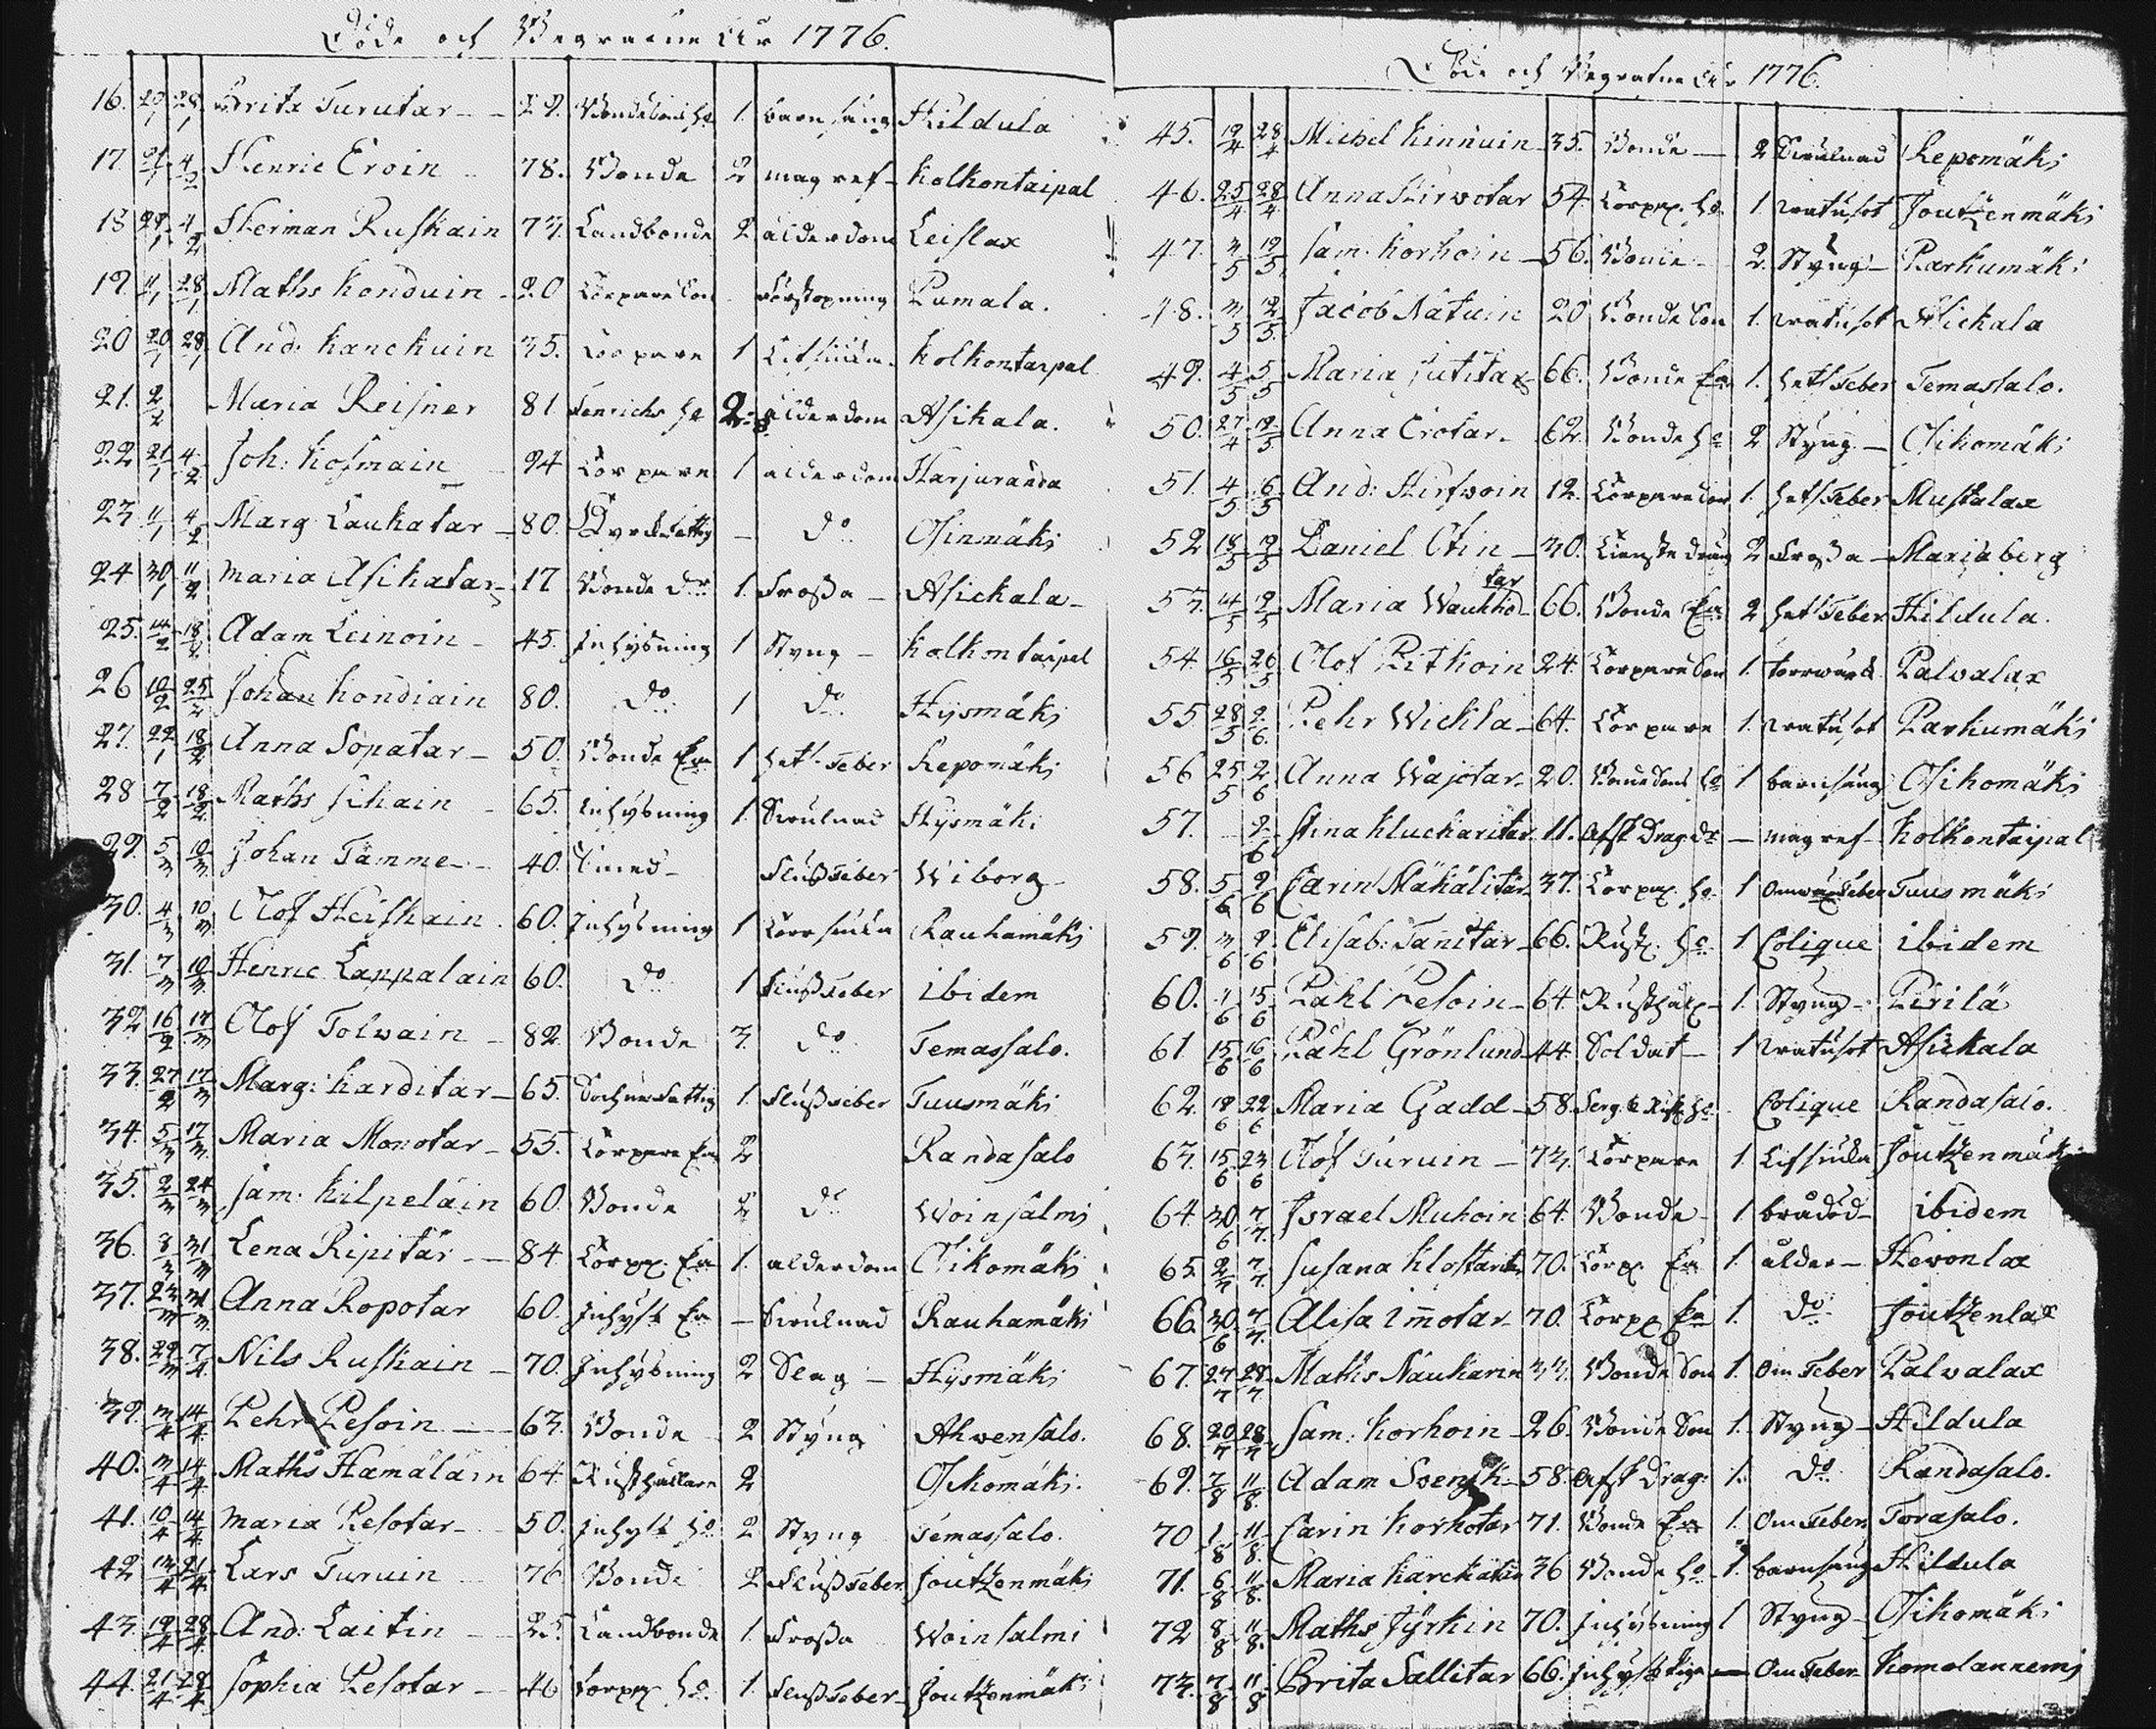 Döde och Begrafne År 1776.
16. 20/1 28/1 Brita Turutar 29. Bondesons ho 1. barnsäng Hildula
17. 21/1 4/2 Henric Eroin 78. Bonde 2 mag ref Kolkontaipal
18 27/1 4/2 Herman Ruskain 73. Landbonde 2 ålderdom Leislax
19. 11/1 28/1 Maths Konduin 20 Torpare Son Förstopning Pumala.
20 20/1 28/1 And: Kanckuin 35. Torpare 1 Kolkontaipal
21. 2/2 Maria Reisner 81 Fenrichs ho 2 ålderdom Asikala.
22 21/1 4/2 Joh: Kosmain 94 Torpare 1 ålderdom Harjuranda
23 11/1 4/2 Marg Laukatar 80. do Osinmäki
24 30/1 11/2 Maria Asikatar 17 Bonde dr 1. Frossa Asickala
25. 14/2 18/2 Adam Leinoin 45. Inhysning 1 Styng Kolkontaipal
26 10/2 25/2 Johan Kondiain 80. do 1 do Hysmäki
27. 22/1 18/2 Anna Sopatar 50. Bonde Ea 1 het. Feber Repomäki
28 7/2 18/2 Maths Sikain 65. Inhysning 1. Swulnad Hysmäki
29. 5/3 10/3 Johan Tamme 40. Flussfeber Wiborg
30. 4/3 10/3 Olof Heiskain. 60. Inhysning 1 Rauhamäki
31. 7/3 10/3 Henric Lappalain 60. do 1 Flussfeber ibidem
32 16/2 17/3 Olof Tolwain 82 Bonde 3. do Temassalo.
33. 27/2 17/3 Marg: Karditar 65. Sochne Fattig 1. Flussfeber Tuusmäki
34. 5/3 17/3 Maria Monotar 55. Torpare Ea 2 Randasalo
35. 2/3 24/3 Sam: Kilpeläin 60. Bonde 2 do Woinsalmi
36. 3/3 31/3 Lena Ripitär 84 Torpp. Ea 1. ålderdom Oikomäki
37. 23/3 31/3 Anna Ropotar 60. Inhyst Ea Swulnad Rauhamäki
38. 29/3 7/4 Nils Ruskain 70. Inhysning 2 Slag Hysmäki
39. 3/4 14/4 Pehr Pesoin 63. Bonde 2 Styng Ahwensalo.
40. 3/4 14/4 Maths Hamäläin 64 Rusthållare 2 Oikomäki.
41. 10/4 14/4 Maria Pesotar 50. Inhyst ho 2 Styng Temassalo.
42 13/4 21/4 Lars Turuin 76 Bonde 2 Flussfeber Joutzenmäki
43. 19/4 28/4 And: Laitin 25. Landbonde 1. Frossa Woinsalmi
44. 21/4 28/4 Sophia Pesotar 46 Torpp ho 1. Flussfeber Joutzenmäki
Döde och Begrafne År 1776.
45. 19/4 28/4 Michel Kinnuin 35. Bonde 2 Swulnad Repomäki
46. 25/4 28/4 Anna Hirwotar 54 Torpp. ho 1. rötusot Joutzenmäki
47. 3/5 12/5 Sam: Korhoin 56. Bonde 2. Styng Parkumäki
48. 3/5 12/5 Jacob Natuin 20 Bonde Son 1. rötusot Hickala
49. 4/5 5/5 Maria Sutitar 66. Bonde Ea 1. het. Feber Temassalo.
50. 27/4 12/5 Anna Erotar 62. Bonde ho 2 Styng Oikomäki
51. 4/5 6/5 And: Hirfwoin 12. Torpare Son 1. het. Feber Mustalax
52 18/5 19/5 Daniel Otin 30. Tienste dräng 2 Frossa Mariäberg
53. 14/5 19/5 Maria Wauhkotar 66. Bonde Ea. 2 het. Feber Hildula.
54. 16/5 26/5 Olof Pitkoin 24. Torpare Son 1. torrwärk Palvalax
55 28/5 2/6 Pehr Wickla 64. Torpare 1. rötusot Parkumäki
56 25/5 2/6 Anna Wajotar 20. Bonde Sons ho 1 barnsäng Oikomäki
57. 2/6 Stina Kluckaritar 11. Afsk Drag dr mag ref Kolkontaipal
58. 5/6 9/6 Carin Mähälitär 37. Torpp. ho 1 Tuusmäki
59. 3/6 9/6 Elisab: Tanitar 66. Rust. ho 1 Colique ibidem
60. 1/6 15/6 Påhl Pesoin 64. Rusthåll 1. Styng Pirilä
61 15/6 16/6 Påhl Grönlund 44 Soldat 1 rötusot Asickala
62. 18/6 22/6 Maria Gadd 58. Serg. ho Colique Randasalo.
63. 15/6 23/6 Olof Turuin 73. Torpare 1. Joutzenmäki
64 30/6 7/7. Israel Muhoin 64. Bonde 1 brådöd ibidem
65 2/7 7/7. Susana Klostarita 70. Torp. Ea 1. ålder Hevonlax
66 30/6 7/7. Alisa Immotar 70. Torpp Ea 1. do Joutzenlax
67. 27/7 28/7 Maths Naukarin 33. Bonde Son 1. Om Feber Palvalax
68. 20/7 28/7 Sam: Korhoin 26. Bonde Son 1. Styng Hildula
69. 7/8 11/8. Adam Svensk 58. Afsk Drag: 1. do Randasalo.
70 1/8 11/8. Carin Korhotar 71. Bonde Ea 1. Om Feber Torasalo.
71. 6/8 11/8. Maria Karckätär 36 Bonde ho 1. barnsäng Hildula
72 8/8 11/8. Maths Jyrkin 70. Inhysning 1 Styng Oikomäki
73. 7/8 11/8 Brita Sallitar 66. Inhyst Piga Om Feber Komolanniemi